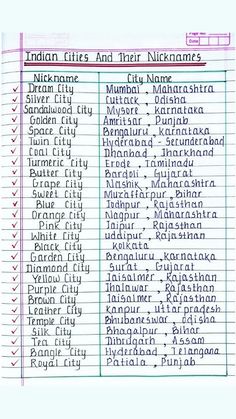 Page No.
Date
Indian Cities And Their Nicknames
Nickname City Name
Dream City Mumbai, Maharashtra
Silver City Cuttack, Odisha
Sandalwood City Mysore, Karnataka
Golden City Amritsar, Punjab
Space City Bengaluru, Karnataka
Twin City Hyderabad - Secunderabad
Coal City Dhanbad, Jharkhand
Turmeric City Erode, Tamilnadu
Butter City Bardoli, Gujarat
Grape City Nashik, Maharashtra
Sweet City Muzaffarpur, Bihar
Blue City Jodhpur, Rajasthan
Orange City Nagpur, Maharashtra
Pink City Jaipur, Rajasthan
White City uddipur, Rajasthan
Black City Kolkata
Garden City Bengaluru, Karnataka
Diamond City Surat, Gujarat
Yellow City Jaisalmer, Rajasthan
Purple City Jhalawar, Rajasthan
Brown City Jaisalmer, Rajasthan
Leather City Kanpur, Uttar pradesh
Temple City Bhubaneswar, Odisha
Silk City Bhagalpur, Bihar
Tea City Dibrugarh, Assam
Bangle City Hyderabad, Telangana
Royal City Patiala, Punjab